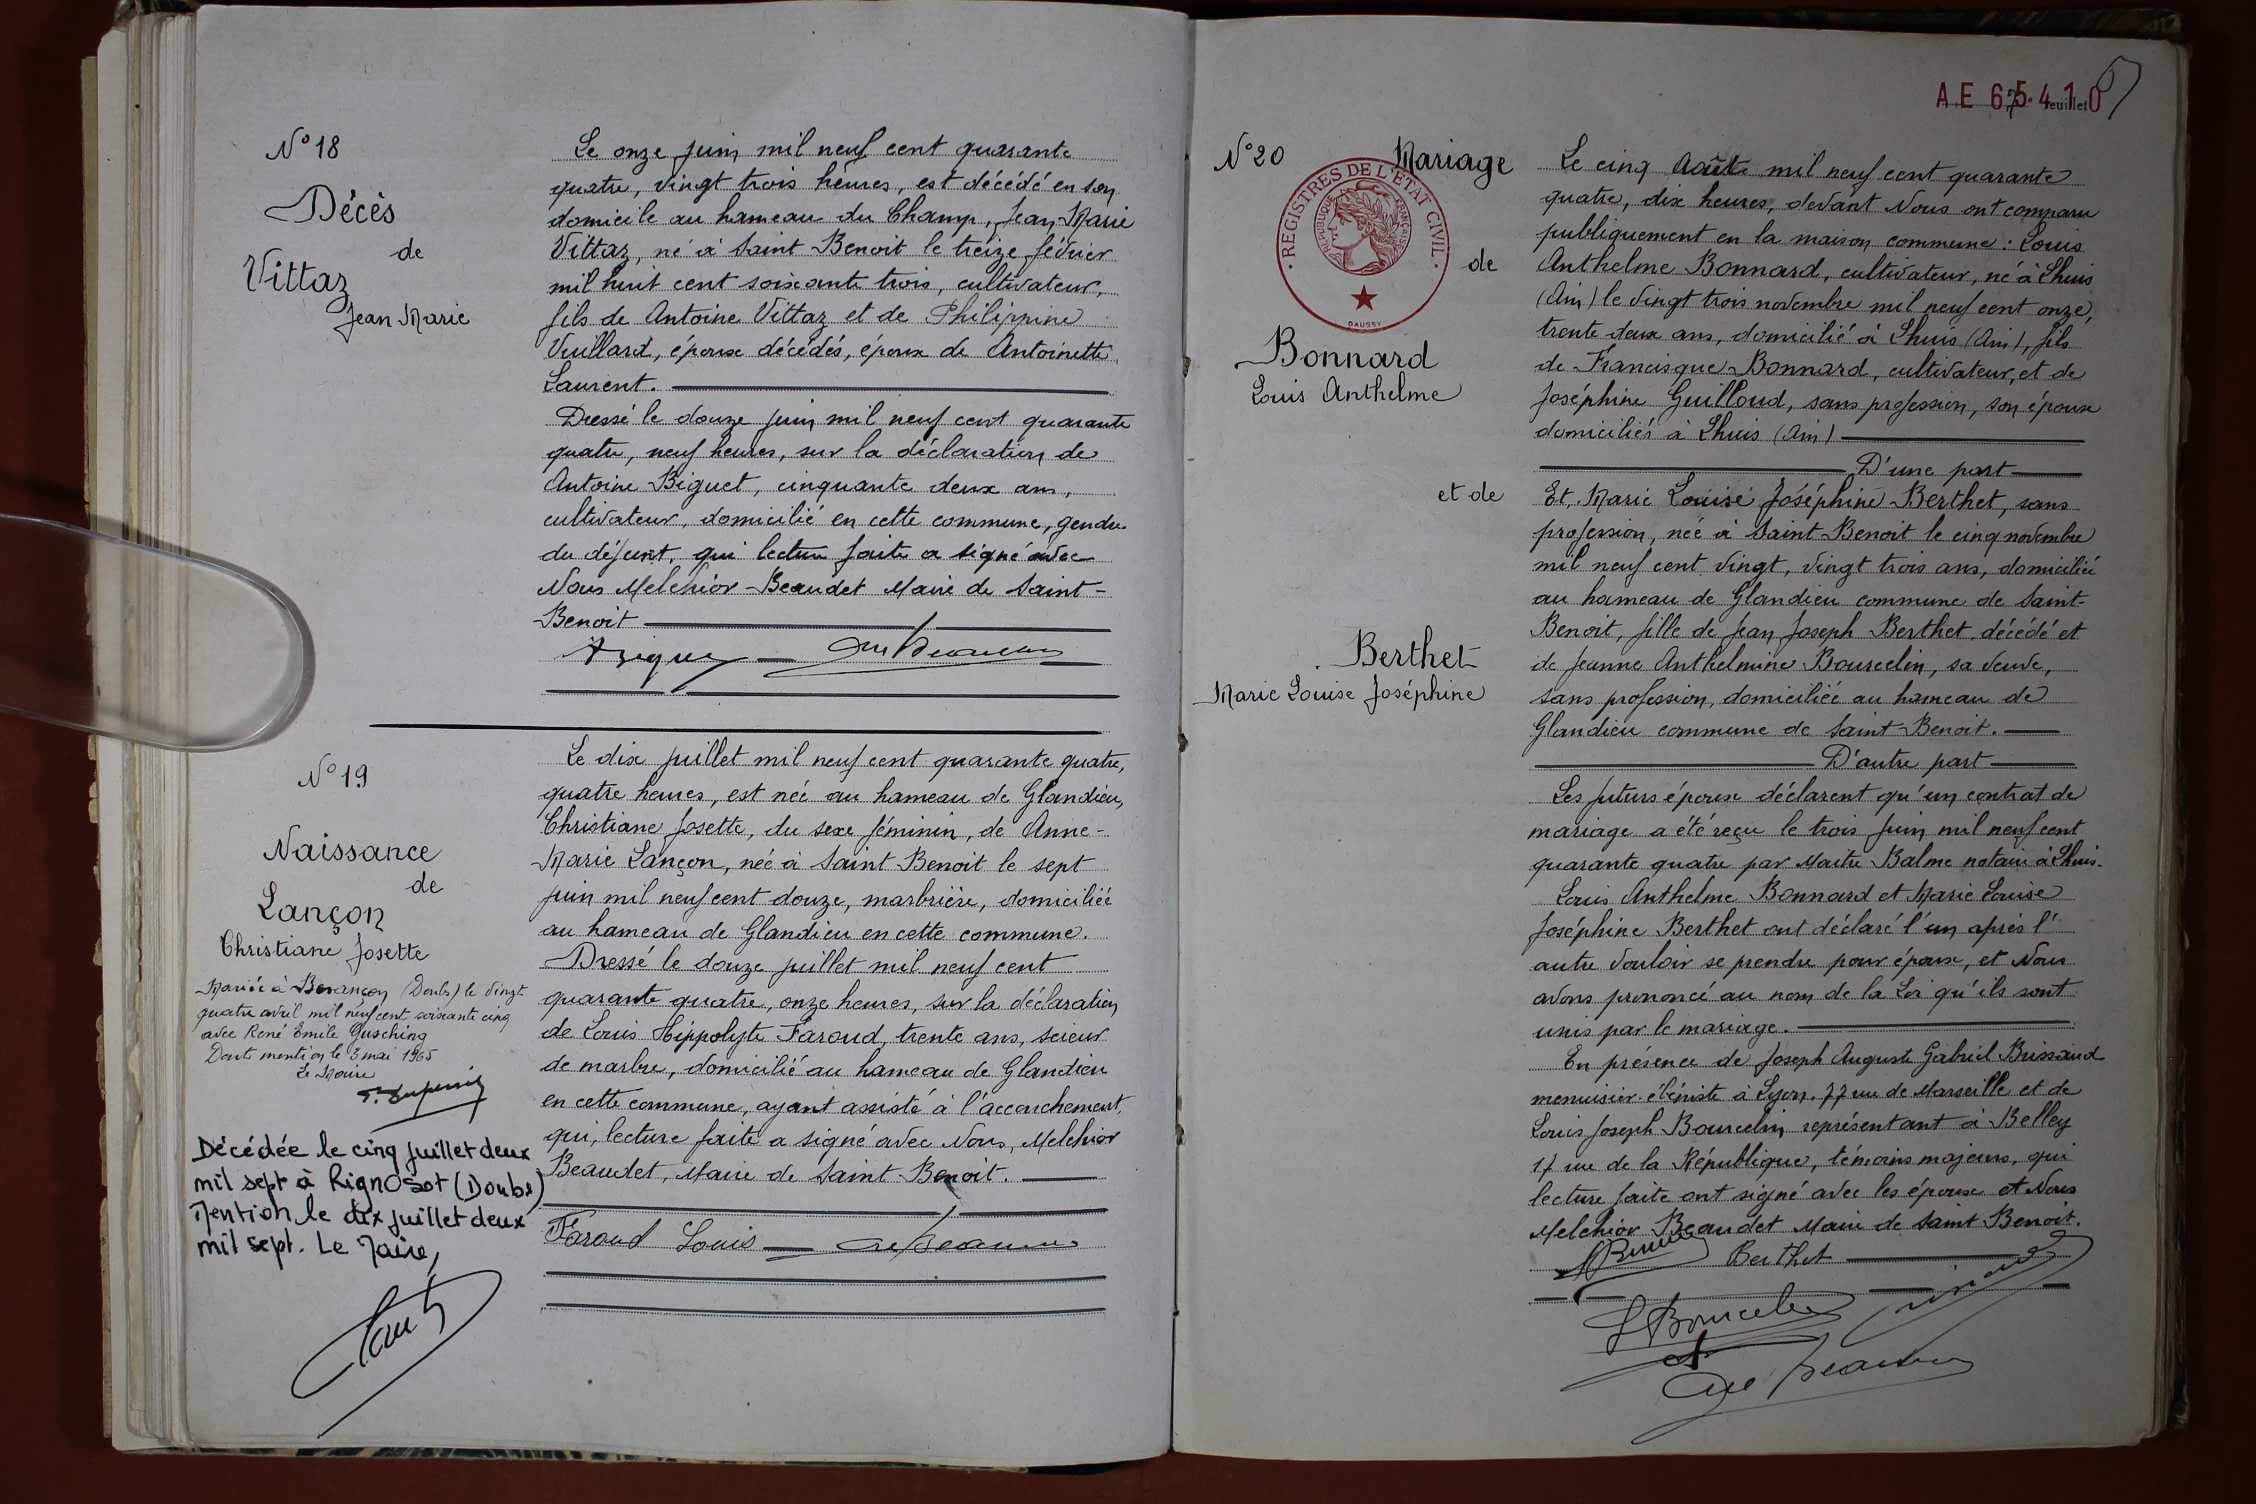 N° 18
Décès
de
Vittaz
Jean Marie
Le onze juin mil neuf cent quarante
quatre, vingt trois heures, est décédé en son
domicile au hameau du Champ, Jean Marie
Vittaz, né à Saint Benoit le treize février
mil huit cent soixante trois, cultivateur,
fils de Antoine Vittaz et de Philippine
Vuillard, époux décédés, époux de Antoinette
Laurent.
Dressé le douze juin mil neuf cent quarante
quatre, neuf heures, sur la déclaration de
Antoine Biguet, cinquante deux ans,
cultivateur, domicilié en cette commune, gendre
du défunt, qui lecture faite a signé avec
Nous Melchior Beaudet Maire de Saint-
Benoit
N° 19
Naissance
de
Lançon
Christiane Josette
Mariée à Besançon (Doubs) le vingt
quatre avril mil neuf cent soixante cinq
avec René Emile Gusching
Dont mention le 3 mai 1965
Le Maire
Décédée le cinq juillet deux
mil sept à Rignosot (Doubs)
Mention le dix juillet deux
mil sept. Le Maire,
Le dix juillet mil neuf cent quarante quatre,
quatre heures, est née au hameau de Glandieu,
Christiane Josette, du sexe féminin, de Anne-
Marie Lançon, née à Saint Benoit le sept
juin mil neuf cent douze, marbrière, domiciliée
au hameau de Glandieu en cette commune.
Dressé le douze juillet mil neuf cent
quarante quatre, onze heures, sur la déclaration
de Louis Hippolyte Faroud, trente ans, scieur
de marbre, domicilié au hameau de Glandieu
en cette commune, ayant assisté à l'accouchement,
qui, lecture faite a signé avec Nous, Melchior
Beaudet, Maire de Saint Benoit.
Faroud Louis
AE 65410
feuillet
N° 20
Mariage
REGISTRES DE L'ÉTAT CIVIL
RÉPUBLIQUE FRANÇAISE
DAUSSY
de
Bonnard
Louis Anthelme
et de
Berthet
Marie Louise Joséphine
Le cinq Août mil neuf cent quarante
quatre, dix heures, devant Nous ont comparu
publiquement en la maison commune : Louis
Anthelme Bonnard, cultivateur, né à Lhuis
(Ain) le vingt trois novembre mil neuf cent onze,
trente deux ans, domicilié à Lhuis (Ain), fils
de Francisque Bonnard, cultivateur, et de
Joséphine Guilloud, sans profession, son épouse
domiciliés à Lhuis (Ain)
D'une part
Et Marie Louise Joséphine Berthet, sans
profession, née à Saint Benoit le cinq novembre
mil neuf cent vingt, vingt trois ans, domiciliée
au hameau de Glandieu commune de Saint-
Benoit, fille de Jean Joseph Berthet, décédé et
de Jeanne Anthelmine Bourcelin, sa veuve,
sans profession, domiciliée au hameau de
Glandieu commune de Saint-Benoit.
D'autre part
Les futurs époux déclarent qu'un contrat de
mariage a été reçu le trois juin mil neuf cent
quarante quatre par Maitre Balme notaire à Lhuis.
Louis Anthelme Bonnard et Marie Louise
Joséphine Berthet ont déclaré l'un après l'
autre vouloir se prendre pour époux, et Nous
avons prononcé au nom de la Loi qu'ils sont
unis par le mariage.
En présence de Joseph Auguste Gabriel Brissaud
menuisier-ébéniste à Lyon. 77 rue de Marseille et de
Louis Joseph Bourcelin représentant à Belley
17 rue de la République, témoins majeurs, qui
lecture faite ont signé avec les époux et Nous
Melchior Beaudet Maire de Saint Benoit.
Berthet
L Bourcelin